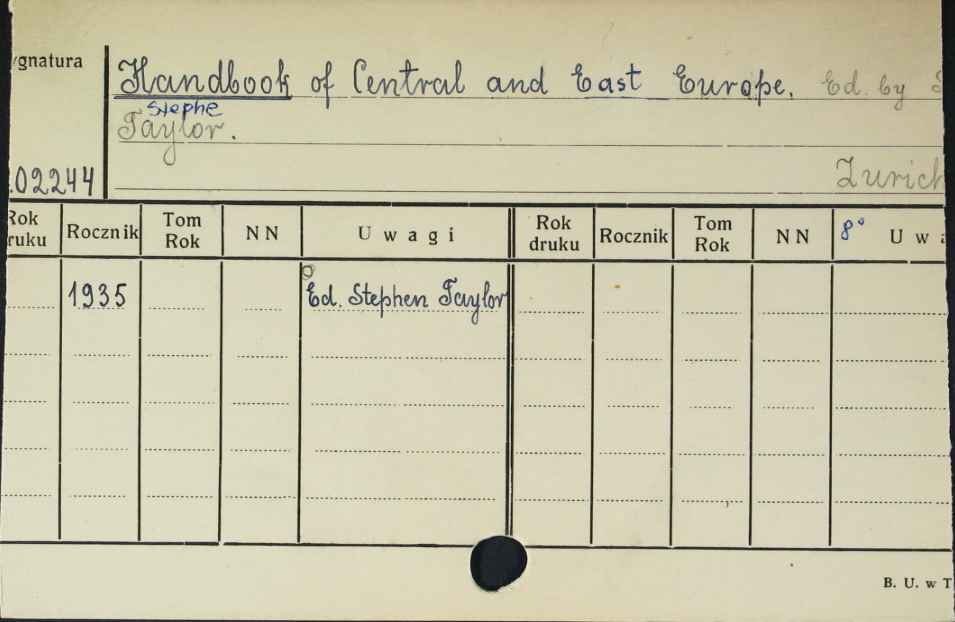 ygnatura
Handbook of Central and East Europe. Ed. by
Stephe
Taylor.
.02244
Zurich
Rok druku Rocznik Tom Rok NN Uwagi Rok druku Rocznik Tom Rok NN 8° Uwa
1935 Ed. Stephen Taylor
B. U. w T